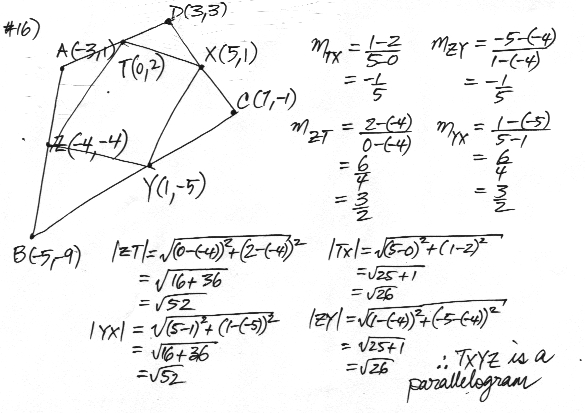 #16)
D(3,3)
A(-3,1)
T(0,2)
X(5,1)
C(7,-1)
Z(-4,-4)
Y(1,-5)
B(-5,-9)
m_TX = (1-2)/(5-0)
= -1/5
m_ZY = (-5-(-4))/(1-(-4))
= -1/5
m_ZT = (2-(-4))/(0-(-4))
= 6/4
= 3/2
m_YX = (1-(-5))/(5-1)
= 6/4
= 3/2
|ZT| = √((0-(-4))²+(2-(-4))²)
= √(16+36)
= √52
|TX| = √((5-0)²+(1-2)²)
= √(25+1)
= √26
|YX| = √((5-1)²+(1-(-5))²)
= √(16+36)
= √52
|ZY| = √((1-(-4))²+(-5-(-4))²)
= √(25+1)
= √26
∴ TXYZ is a
parallelogram